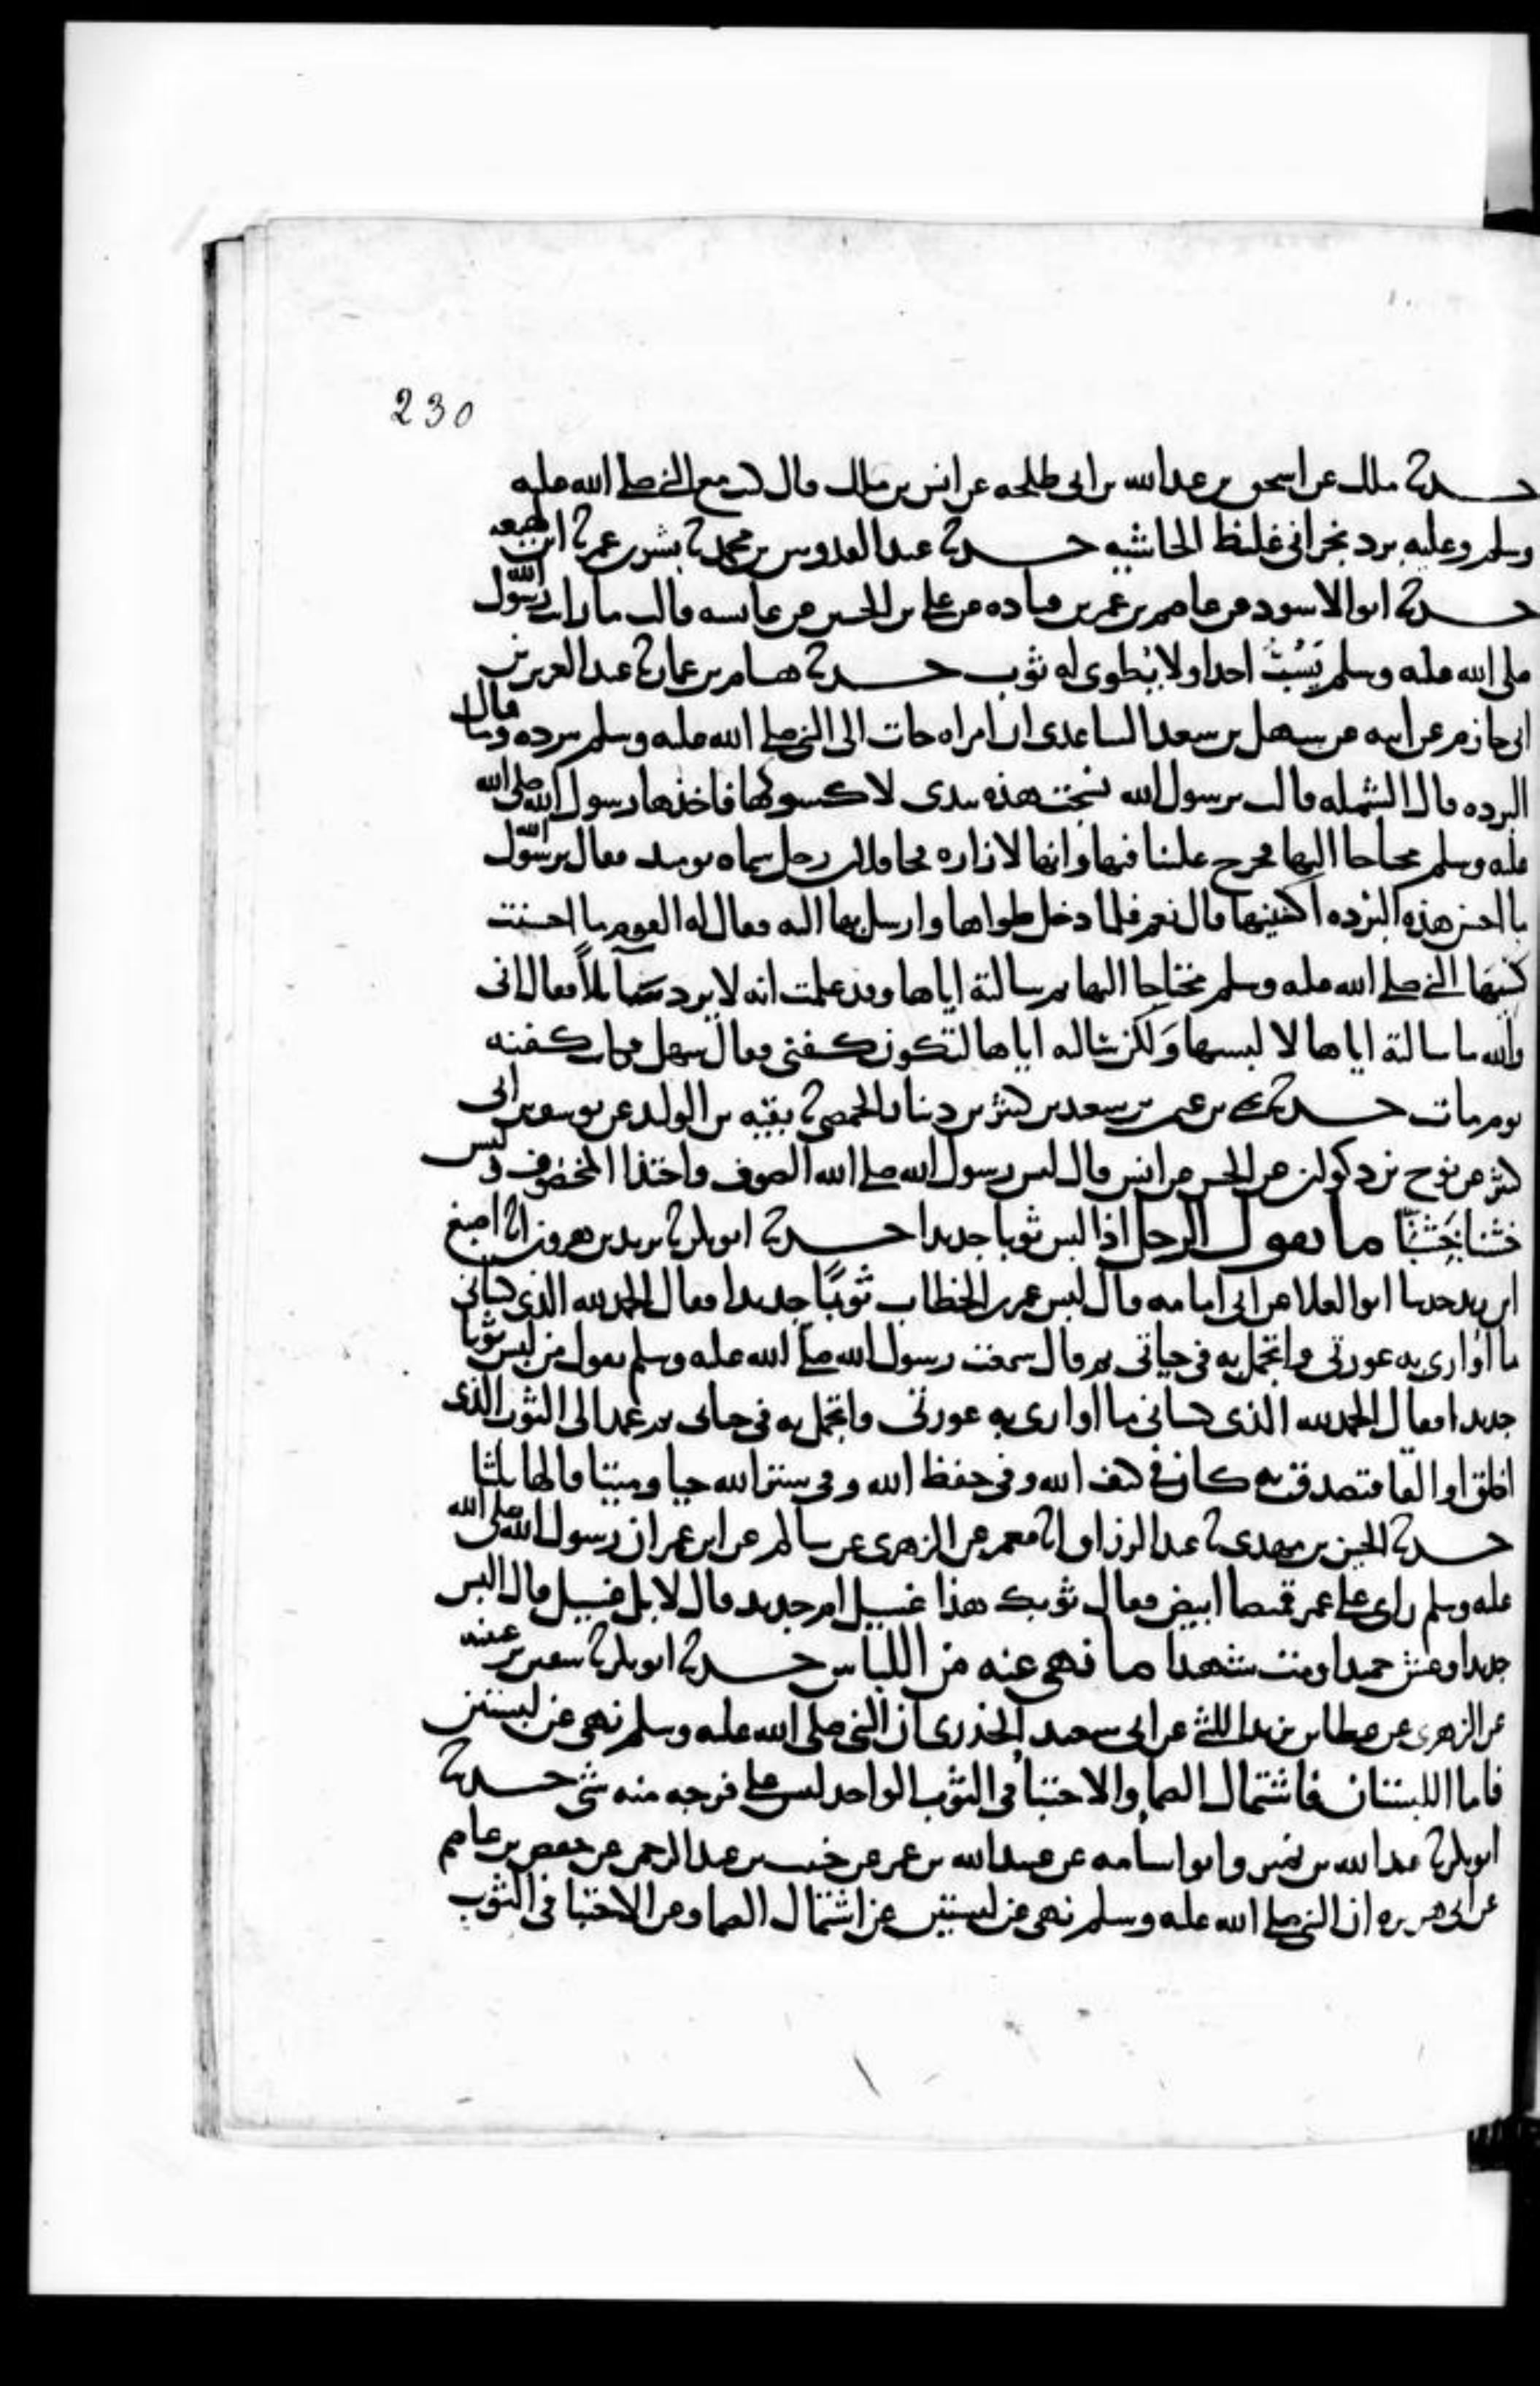 230
حدثنا ملك عن اسحق بن عبد الله بن ابي طلحه عن انس بن ملك قال كنت مع النبي صلى الله عليه
وسلم وعليه برد نجراني غليظ الحاشيه حدثنا عبد القدوس بن محمد ثنا بشر بن عمر ثنا ابن لهيعه
حدثنا ابو الاسود عن عاصم بن عمر بن قتاده عن علي بن الحسين عن عايشه قالت ما رايت رسول الله
صلى الله عليه وسلم يسب احدا ولا يطوى له ثوب حدثنا هشام بن عمار ثنا عبد العزيز بن
ابي حازم عن ابيه عن سهل بن سعد الساعدي ان امراه جات الى النبي صلى الله عليه وسلم ببرده قال وما
البرده قال الشمله قالت يرسول الله نسجت هذه بيدي لاكسوكها فاخذها رسول الله صلى الله
عليه وسلم محتاجا اليها فخرج علينا فيها وانها لازاره فجا فلان رجل سماه يوميد فقال يرسول الله
ما احسن هذه البرده اكسنيها قال نعم فلما دخل طواها وارسل بها اليه فقال له القوم ما احسنت
كسيها النبي صلى الله عليه وسلم محتاجا اليها ثم سالته اياها وقد علمت انه لا يرد سايلا فقال اني
والله ما سالته اياها لالبسها ولكن سالته اياها لتكون كفني فقال سهل فكانت كفنه
يوم مات حدثنا يحيى بن عثمن بن سعيد بن كثير بن دينار الحمصي ثنا بقيه بن الوليد عن يوسف بن ابي
كثير عن نوح بن ذكوان عن الحسن عن انس قال لبس رسول الله صلى الله الصوف واحتذا المخصوف ولبس
خشنا خشنا ما يقول الرجل اذا لبس ثوبا جديدا حدثنا ابو بكر ثنا يزيد بن هرون انا اصبغ
ابن زيد حدثنا ابو العلا عن ابي امامه قال لبس عمر بن الخطاب ثوبا جديدا فقال الحمد لله الذي كساني
ما اواري به عورتي واتجمل به في حياتي ثم قال سمعت رسول الله صلى الله عليه وسلم يقول من لبس ثوبا
جديدا فقال الحمد لله الذي كساني ما اواري به عورتي واتجمل به في حياتي ثم عمد الى الثوب الذي
اخلق او القا فتصدق به كان في كنف الله وفي حفظ الله وفي ستر الله حيا وميتا قالها ثلثا
حدثنا الحسين بن مهدي ثنا عبد الرزاق انا معمر عن الزهري عن سالم عن ابن عمر ان رسول الله صلى الله
عليه وسلم راى على عمر قميصا ابيض فقال ثوبك هذا غسيل ام جديد قال لا بل غسيل قال البس
جديدا وعش حميدا ومت شهيدا ما نهي عنه من اللباس حدثنا ابو بكر ثنا سفين بن عيينه
عن الزهري عن عطا بن يزيد الليثي عن ابي سعيد الخدري ان النبي صلى الله عليه وسلم نهى عن لبستين
فاما اللبستان فاشتمال الصما والاحتبا في الثوب الواحد ليس على فرجه منه شي حدثنا
ابو بكر ثنا عبد الله بن نمير وابو اسامه عن عبيد الله بن عمر عن خبيب بن عبد الرحمن عن حفص بن عاصم
عن ابي هريره ان النبي صلى الله عليه وسلم نهى عن لبستين عن اشتمال الصما وعن الاحتبا في الثوب